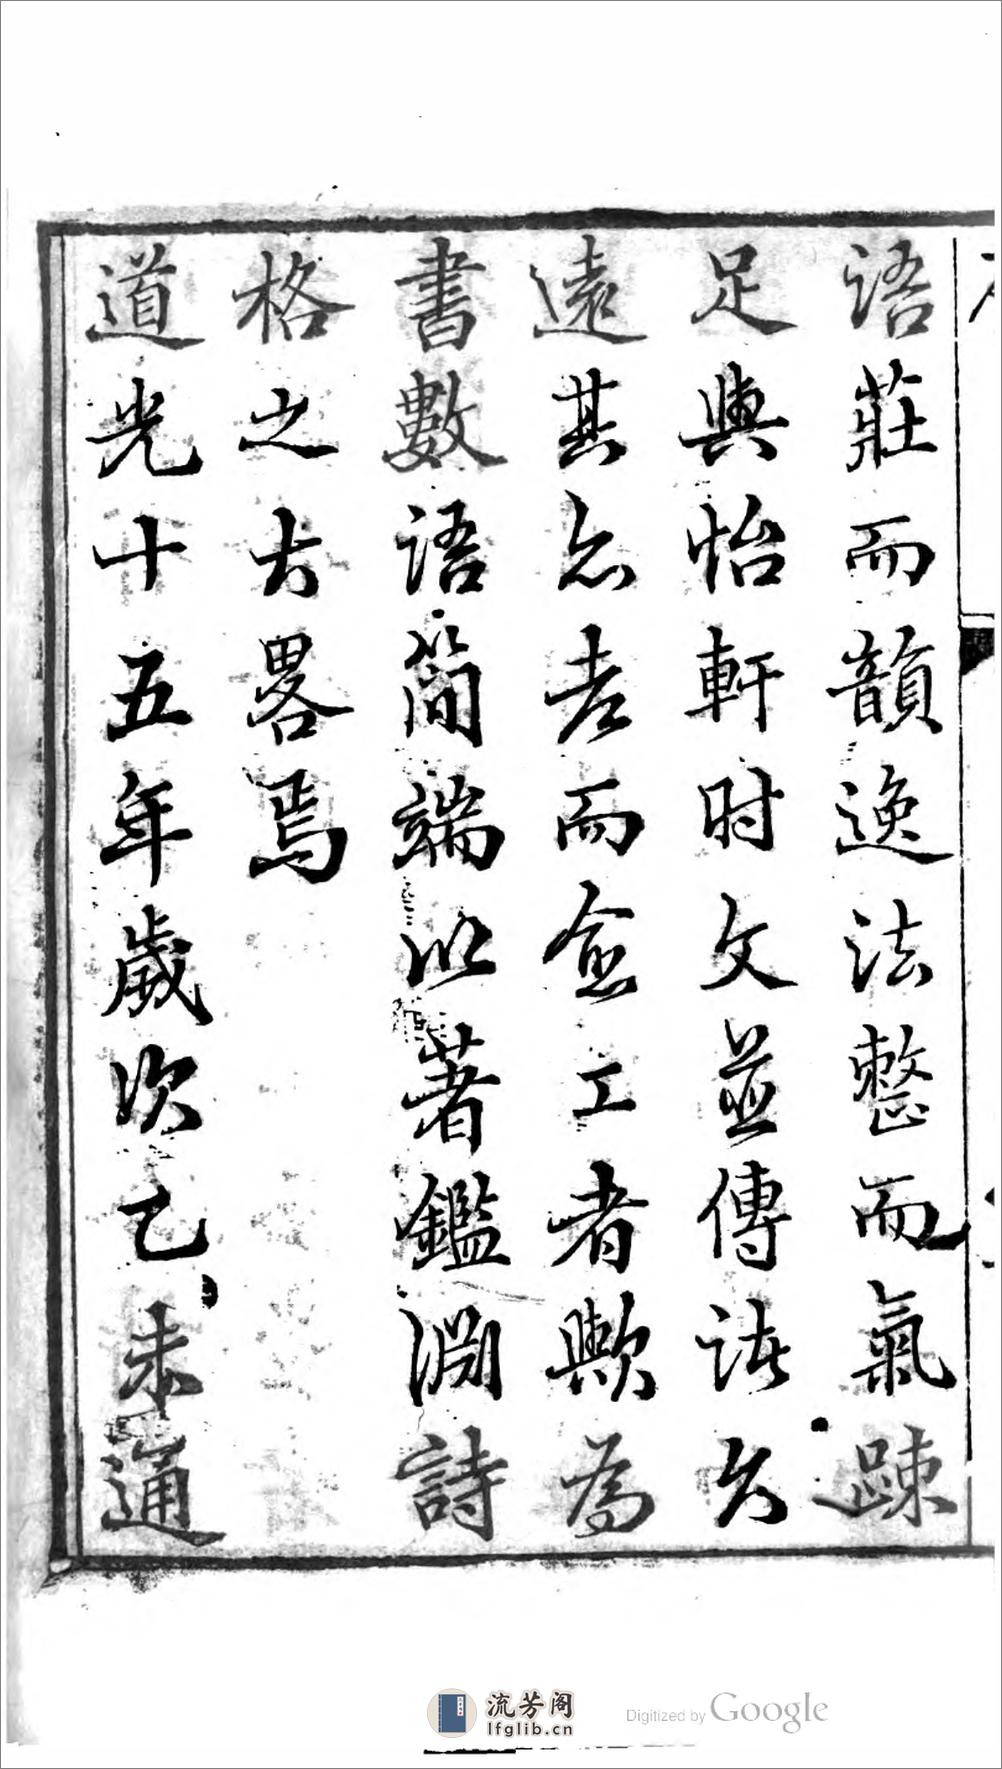 語莊而韻逸法整而氣踈
足與怡軒时文並傳詠久
遠其忘老而愈工者歟為
書數語簡端以著鑑淵詩
格之大畧焉
道光十五年歲次乙未通
流芳阁
lfglib.cn
Digitized by Google